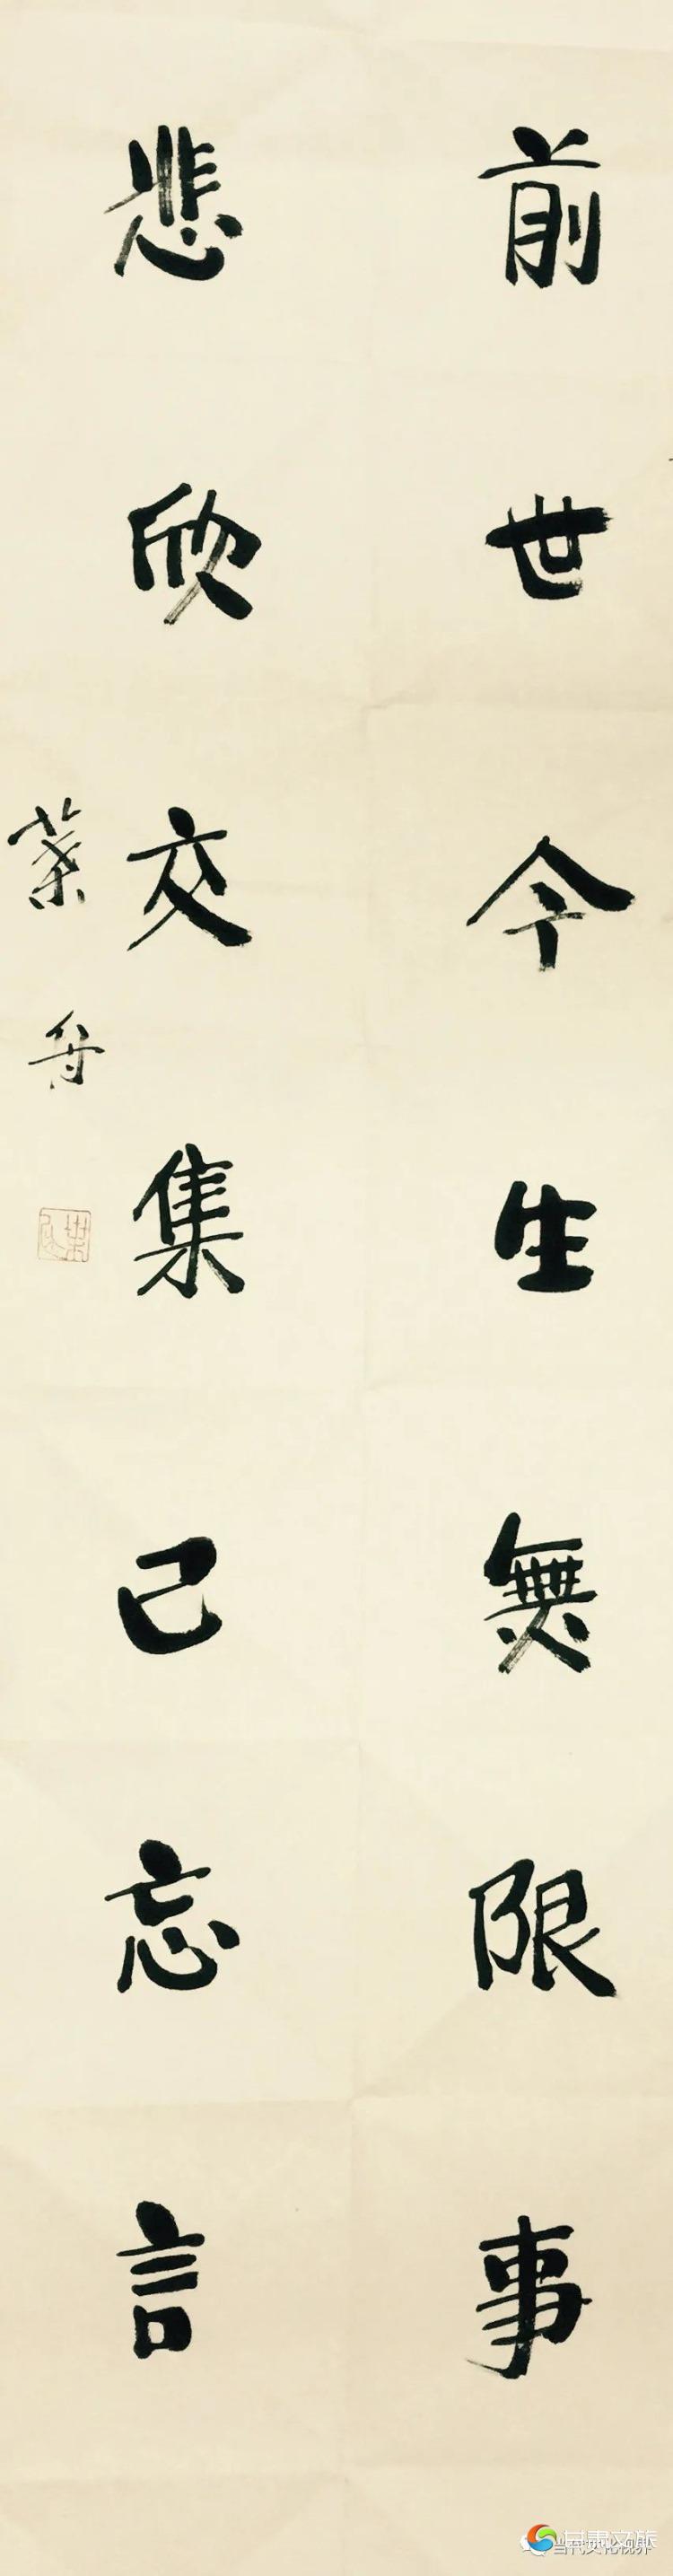 前世今生無限事
悲欣交集已忘言
葉舟
甘肃文旅
当代文化视界